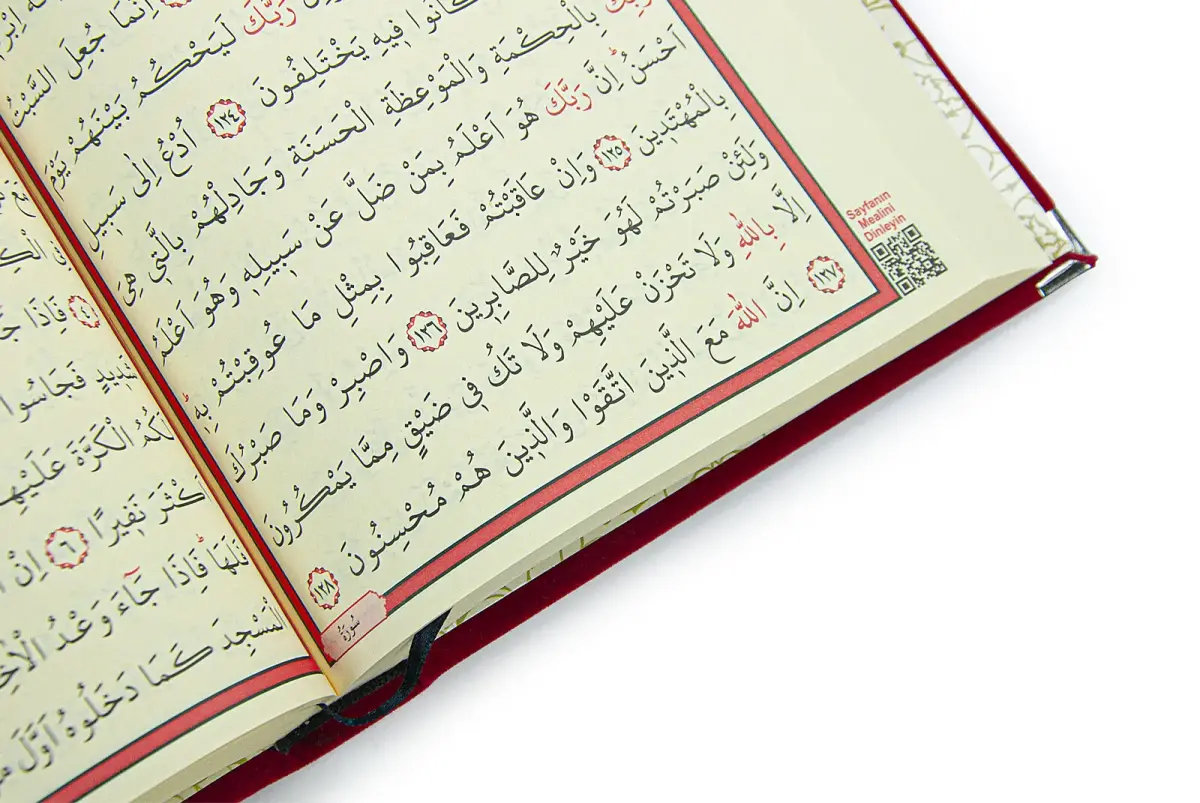 اِنَّمَا جُعِلَ السَّبْتُ
رَبَّكَ لَيَحْكُمُ بَيْنَهُمْ يَوْمَ
كَانُوا فِيهِ يَخْتَلِفُونَ ١٢٤ اُدْعُ اِلٰى سَبِيلِ
رَبِّكَ بِالْحِكْمَةِ وَالْمَوْعِظَةِ الْحَسَنَةِ وَجَادِلْهُمْ بِالَّتٖي هِيَ
اَحْسَنُ اِنَّ رَبَّكَ هُوَ اَعْلَمُ بِمَنْ ضَلَّ عَنْ سَبِيلِهٖ وَهُوَ اَعْلَمُ
بِالْمُهْتَدِينَ ١٢٥ وَاِنْ عَاقَبْتُمْ فَعَاقِبُوا بِمِثْلِ مَا عُوقِبْتُمْ بِهٖ
وَلَئِنْ صَبَرْتُمْ لَهُوَ خَيْرٌ لِلصَّابِرِينَ ١٢٦ وَاصْبِرْ وَمَا صَبْرُكَ
اِلَّا بِاللّٰهِ وَلَا تَحْزَنْ عَلَيْهِمْ وَلَا تَكُ فِي ضَيْقٍ مِمَّا يَمْكُرُونَ
١٢٧ اِنَّ اللّٰهَ مَعَ الَّذِينَ اتَّقَوْا وَالَّذِينَ هُمْ مُحْسِنُونَ ١٢٨
سُورَةُ
Sayfanın
Mealini
Dinleyin
فَاِذَا
فَجَاسُوا
الْكَرَّةَ عَلَيْهِمْ
اَكْثَرَ نَفِيرًا ٦ اِنْ
فَاِذَا جَٓاءَ وَعْدُ
الْمَسْجِدَ كَمَا دَخَلُوهُ اَوَّلَ